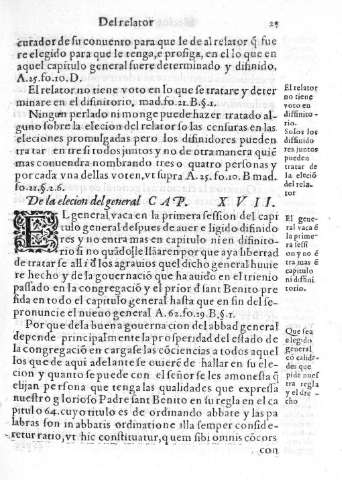 Del relator 25
curador de su conuento para que le de al relator q̃ fue
re elegido para que le tenga, e prosiga, en el lo que en
aquel capitulo general fuere determinado y difinido,
A.25.fo.10.D.
El relator no tiene voto en lo que se tratare y deter
minare en el difinitorio, mad.fo.21.B.§.1.
Ningun perlado ni monge puede hazer tratado al-
guno sobre la elecion del relator so las censuras en las
eleciones promulgadas pero los difinidores pueden
tratar en tre si todos juntos y no de otra manera quiẽ
mas conuendra nombrando tres o quatro personas y
por cada vna dellas voten, vt supra A.25.fo.10.B mad.
fo.21.§.2.6.
El relator
no tiene
voto en
diffinito-
rio.
Solos los
diffinido
res juntos
pueden
tratar de
la eleciõ
del rela-
tor
De la elecion del general CAP. XVII.
EL general vaca en la primera session del capi
tulo general despues de auer e ligido difinido
res y no entra mas en capitulo ni en difinito-
rio si no quãdo le llamaren por que aya libertad
de tratar se alli d̃ los agrauios quel dicho general huuie
re hecho y de la gouernaciõ que ha auido en el trienio
passado en la congregaciõ y el prior d̃ sant Benito pre
sida en todo el capitulo general hasta que en fin del se-
pronuncie el nueuo general A.62.fo.29.B.§.1.
El gene-
ral vaca ẽ
la prime-
ra sessi
on y no ẽ
tra mas ẽ
capitulo
ni difini
torio.
Por que de la buena gouerna cion del abbad general
depende principalmente la prosperidad del estado de
la congregaciõ en cargase las cõciencias a todos aquel
los que de aqui adelante se ouierẽ de hallar en su ele-
cion y quanto se puede con el señor se les amonesta q̃
elijan persona que tenga las qualidades que expressa
nuestro glorioso Padre sant Benito en su regla en el ca
pitulo 64. cuyo titulo es de ordinando abbate y las pa
labras son in abbatis ordinatione illa semper conside-
retur ratio, vt hic constituatur, quem sibi omnis cõcors
Que sea
elegido
general
cõ calida-
des que
pide nues
tra regla
y el dre-
cho
con